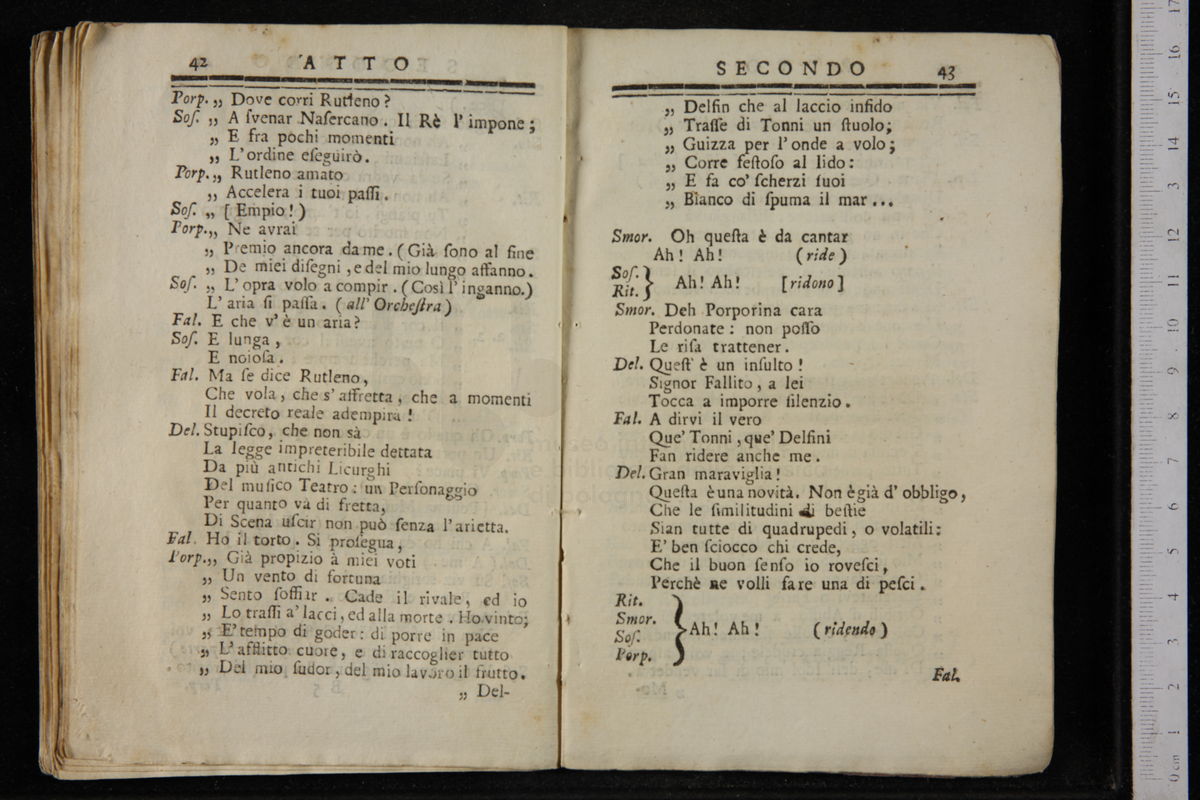 42 ATTO
Porp. „ Dove corri Rutleno?
Soſ. „ A ſvenar Naſercano. Il Rè l'impone;
„ E fra pochi momenti
„ L'ordine eſeguirò.
Porp. „ Rutleno amato
„ Accelera i tuoi paſſi.
Soſ. „ [Empio!)
Porp. „ Ne avrai
„ Premio ancora da me. (Già ſono al fine
„ De miei diſegni, e del mio lungo affanno.
Soſ. „ L'opra volo a compir. (Così l'inganno.)
L'aria ſi paſſa. (all'Orcheſtra)
Fal. E che v'è un aria?
Soſ. E lunga,
E noioſa.
Fal. Ma ſe dice Rutleno,
Che vola, che s'affretta, che a momenti
Il decreto reale adempira!
Del. Stupiſco, che non sà
La legge impreteribile dettata
Da più antichi Licurghi
Del muſico Teatro: un Perſonaggio
Per quanto và di fretta,
Di Scena uſcir non può ſenza l'arietta.
Fal. Ho il torto. Si proſegua,
Porp. „ Già propizio à miei voti
„ Un vento di fortuna
„ Sento ſoffiar. Cade il rivale, ed io
„ Lo traſſi a' lacci, ed alla morte. Ho vinto;
„ E' tempo di goder: di porre in pace
„ L'afflitto cuore, e di raccoglier tutto
„ Del mio ſudor, del mio lavoro il frutto.
„ Del-
SECONDO 43
„ Delfin che al laccio infido
„ Traſſe di Tonni un ſtuolo;
„ Guizza per l'onde a volo;
„ Corre feſtoſo al lido:
„ E fa co' ſcherzi ſuoi
„ Bianco di ſpuma il mar...
Smor. Oh queſta è da cantar
Ah! Ah! (ride)
Soſ.
Rit. } Ah! Ah! [ridono]
Smor. Deh Porporina cara
Perdonate: non poſſo
Le riſa trattener.
Del. Queſt' è un inſulto!
Signor Fallito, a lei
Tocca a imporre ſilenzio.
Fal. A dirvi il vero
Que' Tonni, que' Delfini
Fan ridere anche me.
Del. Gran maraviglia!
Queſta è una novità. Non è già d'obbligo,
Che le ſimilitudini di beſtie
Sian tutte di quadrupedi, o volatili:
E' ben ſciocco chi crede,
Che il buon ſenſo io roveſci,
Perchè ne volli fare una di peſci.
Rit.
Smor.
Soſ. } Ah! Ah! (ridendo)
Porp.
Fal.